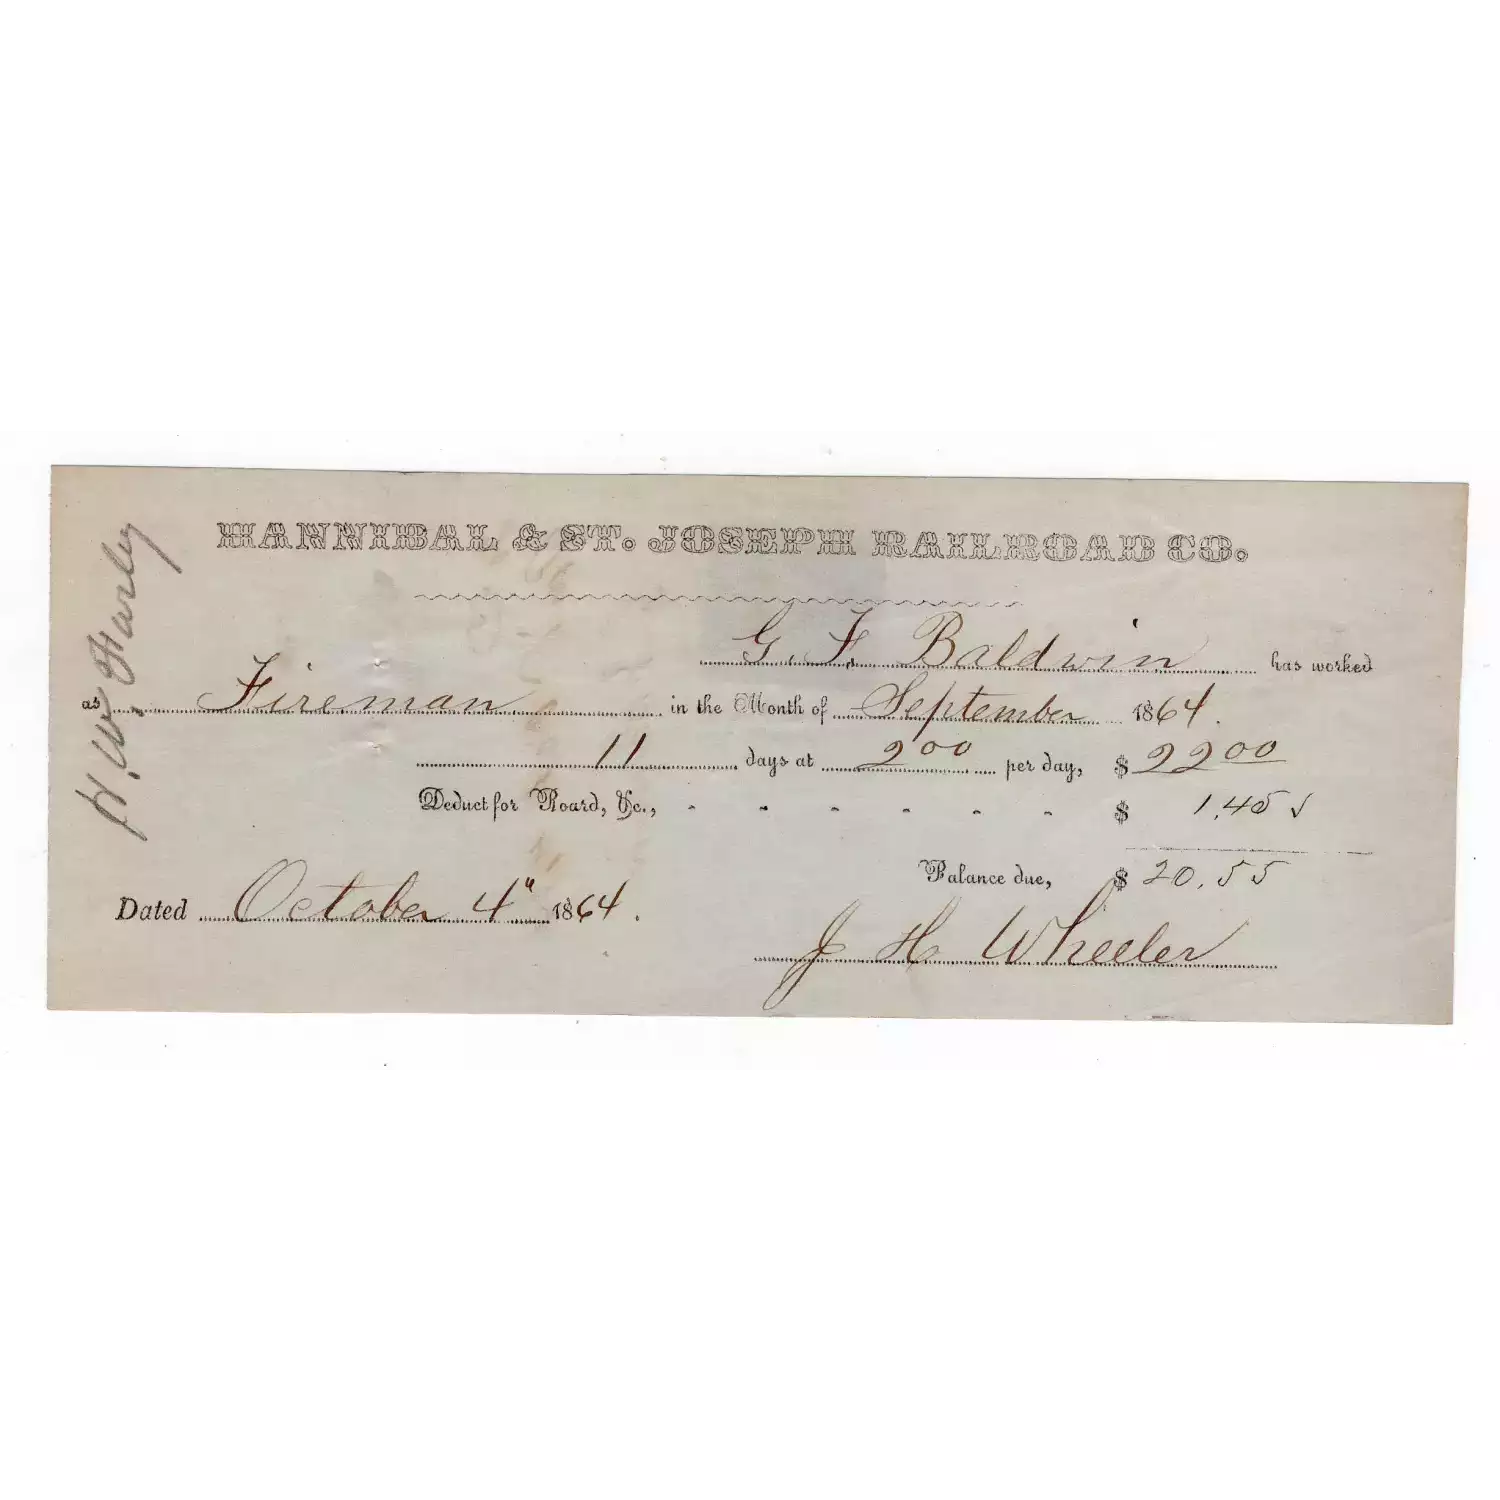 HANNIBAL & ST. JOSEPH RAILROAD CO.
G. F. Baldwin has worked
as Fireman in the Month of September 1864.
11 days at 2 00 per day, $ 22 00
Deduct for Board, &c., - - - - - - $ 1.45 ✓
Balance due, $ 20.55
Dated October 4" 1864.
J H Wheeler
H. W. Farley